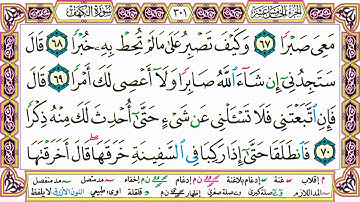 سُورَةُ الكَهْفِ ٣٠١ الجزءُ الخامِسَ عَشَرَ
مَعِىَ صَبْرًا ٦٧ وَكَيْفَ تَصْبِرُ عَلَىٰ مَالَمْ تُحِطْ بِهِۦ خُبْرًا ٦٨ قَالَ
سَتَجِدُنِىٓ إِن شَآءَ ٱللَّهُ صَابِرًا وَلَآ أَعْصِى لَكَ أَمْرًا ٦٩ قَالَ
فَإِنِ ٱتَّبَعْتَنِى فَلَا تَسْـَٔلْنِى عَن شَىْءٍ حَتَّىٰٓ أُحْدِثَ لَكَ مِنْهُ ذِكْرًا
٧٠ فَٱنطَلَقَا حَتَّىٰٓ إِذَا رَكِبَا فِى ٱلسَّفِينَةِ خَرَقَهَا قَالَ أَخَرَقْتَهَا